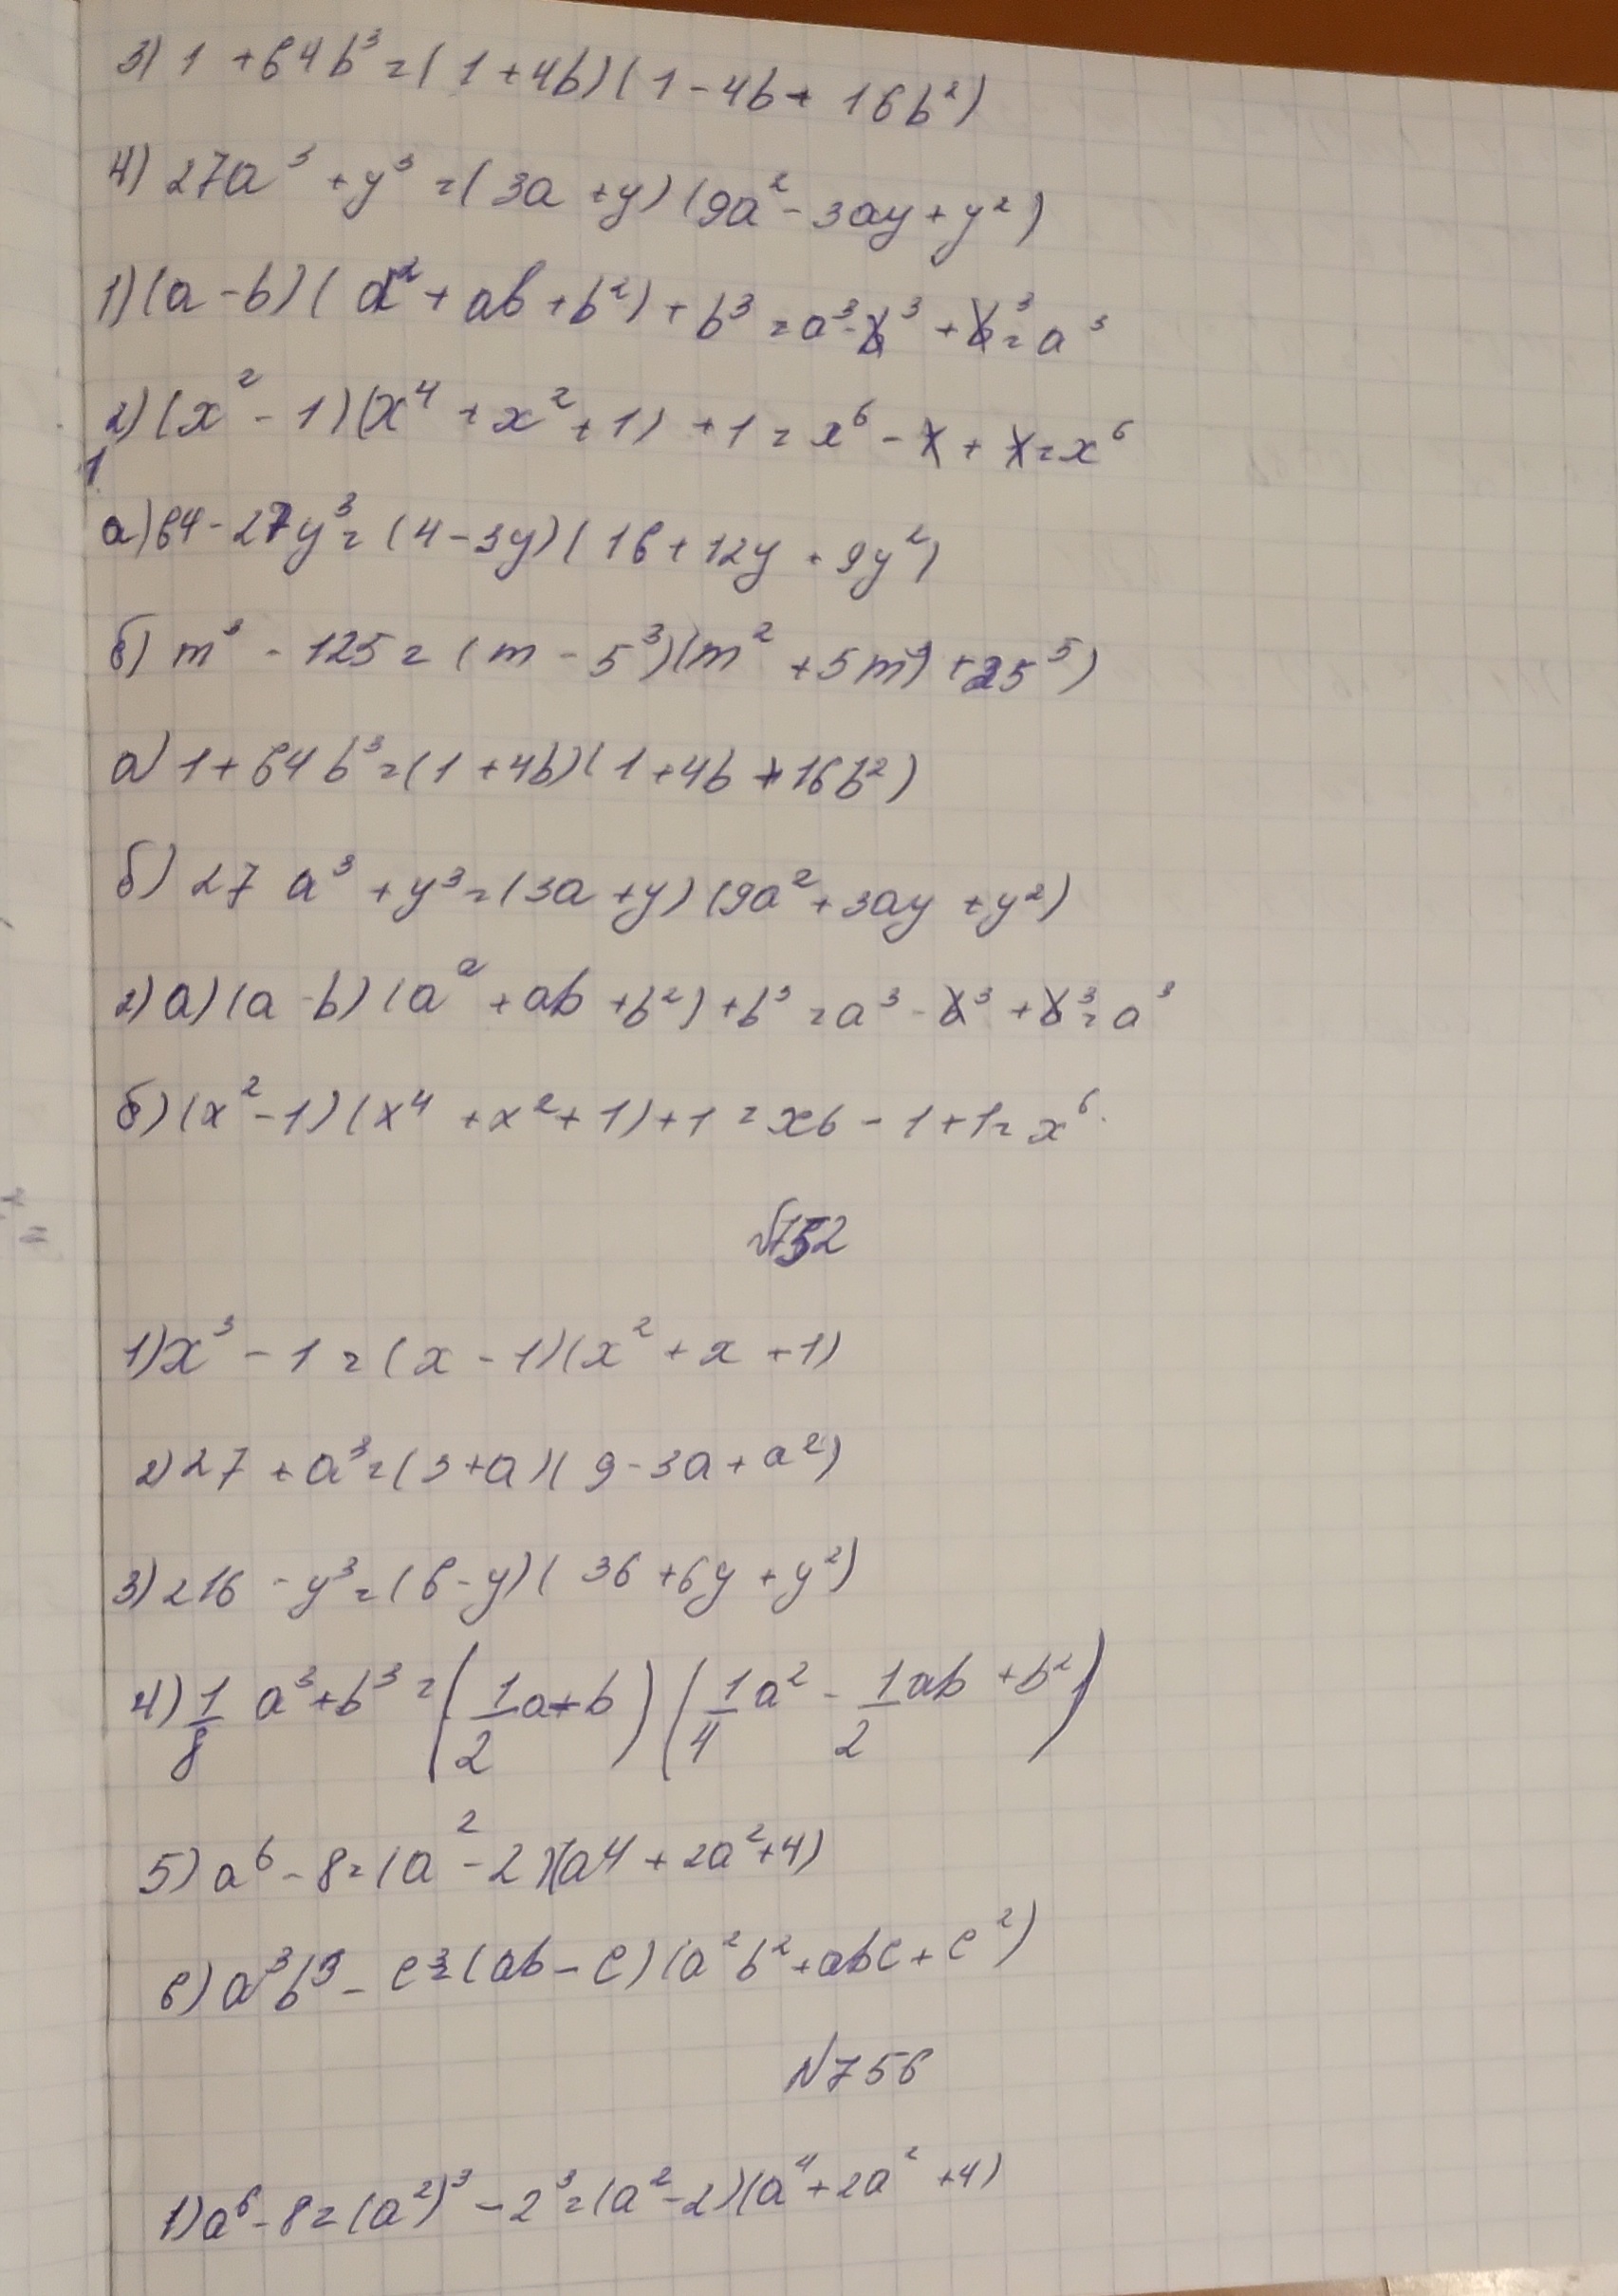 3) 1 + 64b³ = (1 + 4b)(1 - 4b + 16b²)
4) 27a³ + y³ = (3a + y)(9a² - 3ay + y²)
1) (a - b)(a² + ab + b²) + b³ = a³ - b³ + b³ = a³
2) (x² - 1)(x⁴ + x² + 1) + 1 = x⁶ - 1 + 1 = x⁶
1
а) 64 - 27y³ = (4 - 3y)(16 + 12y + 9y²)
б) m³ - 125 = (m - 5³)(m² + 5m + 25⁵)
а) 1 + 64b³ = (1 + 4b)(1 + 4b + 16b²)
б) 27a³ + y³ = (3a + y)(9a² + 3ay + y²)
2) а) (a - b)(a² + ab + b²) + b³ = a³ - b³ + b³ = a³
б) (x² - 1)(x⁴ + x² + 1) + 1 = x6 - 1 + 1 = x⁶.
№752
1) x³ - 1 = (x - 1)(x² + x + 1)
2) 27 + a³ = (3 + a)(9 - 3a + a²)
3) 216 - y³ = (6 - y)(36 + 6y + y²)
4) 1/8 a³ + b³ = (1/2 a + b)(1/4 a² - 1/2 ab + b²)
5) a⁶ - 8 = (a² - 2)(a4 + 2a² + 4)
6) a³b³ - c³ = (ab - c)(a²b² + abc + c²)
№756
1) a⁶ - 8 = (a²)³ - 2³ = (a² - 2)(a⁴ + 2a² + 4)